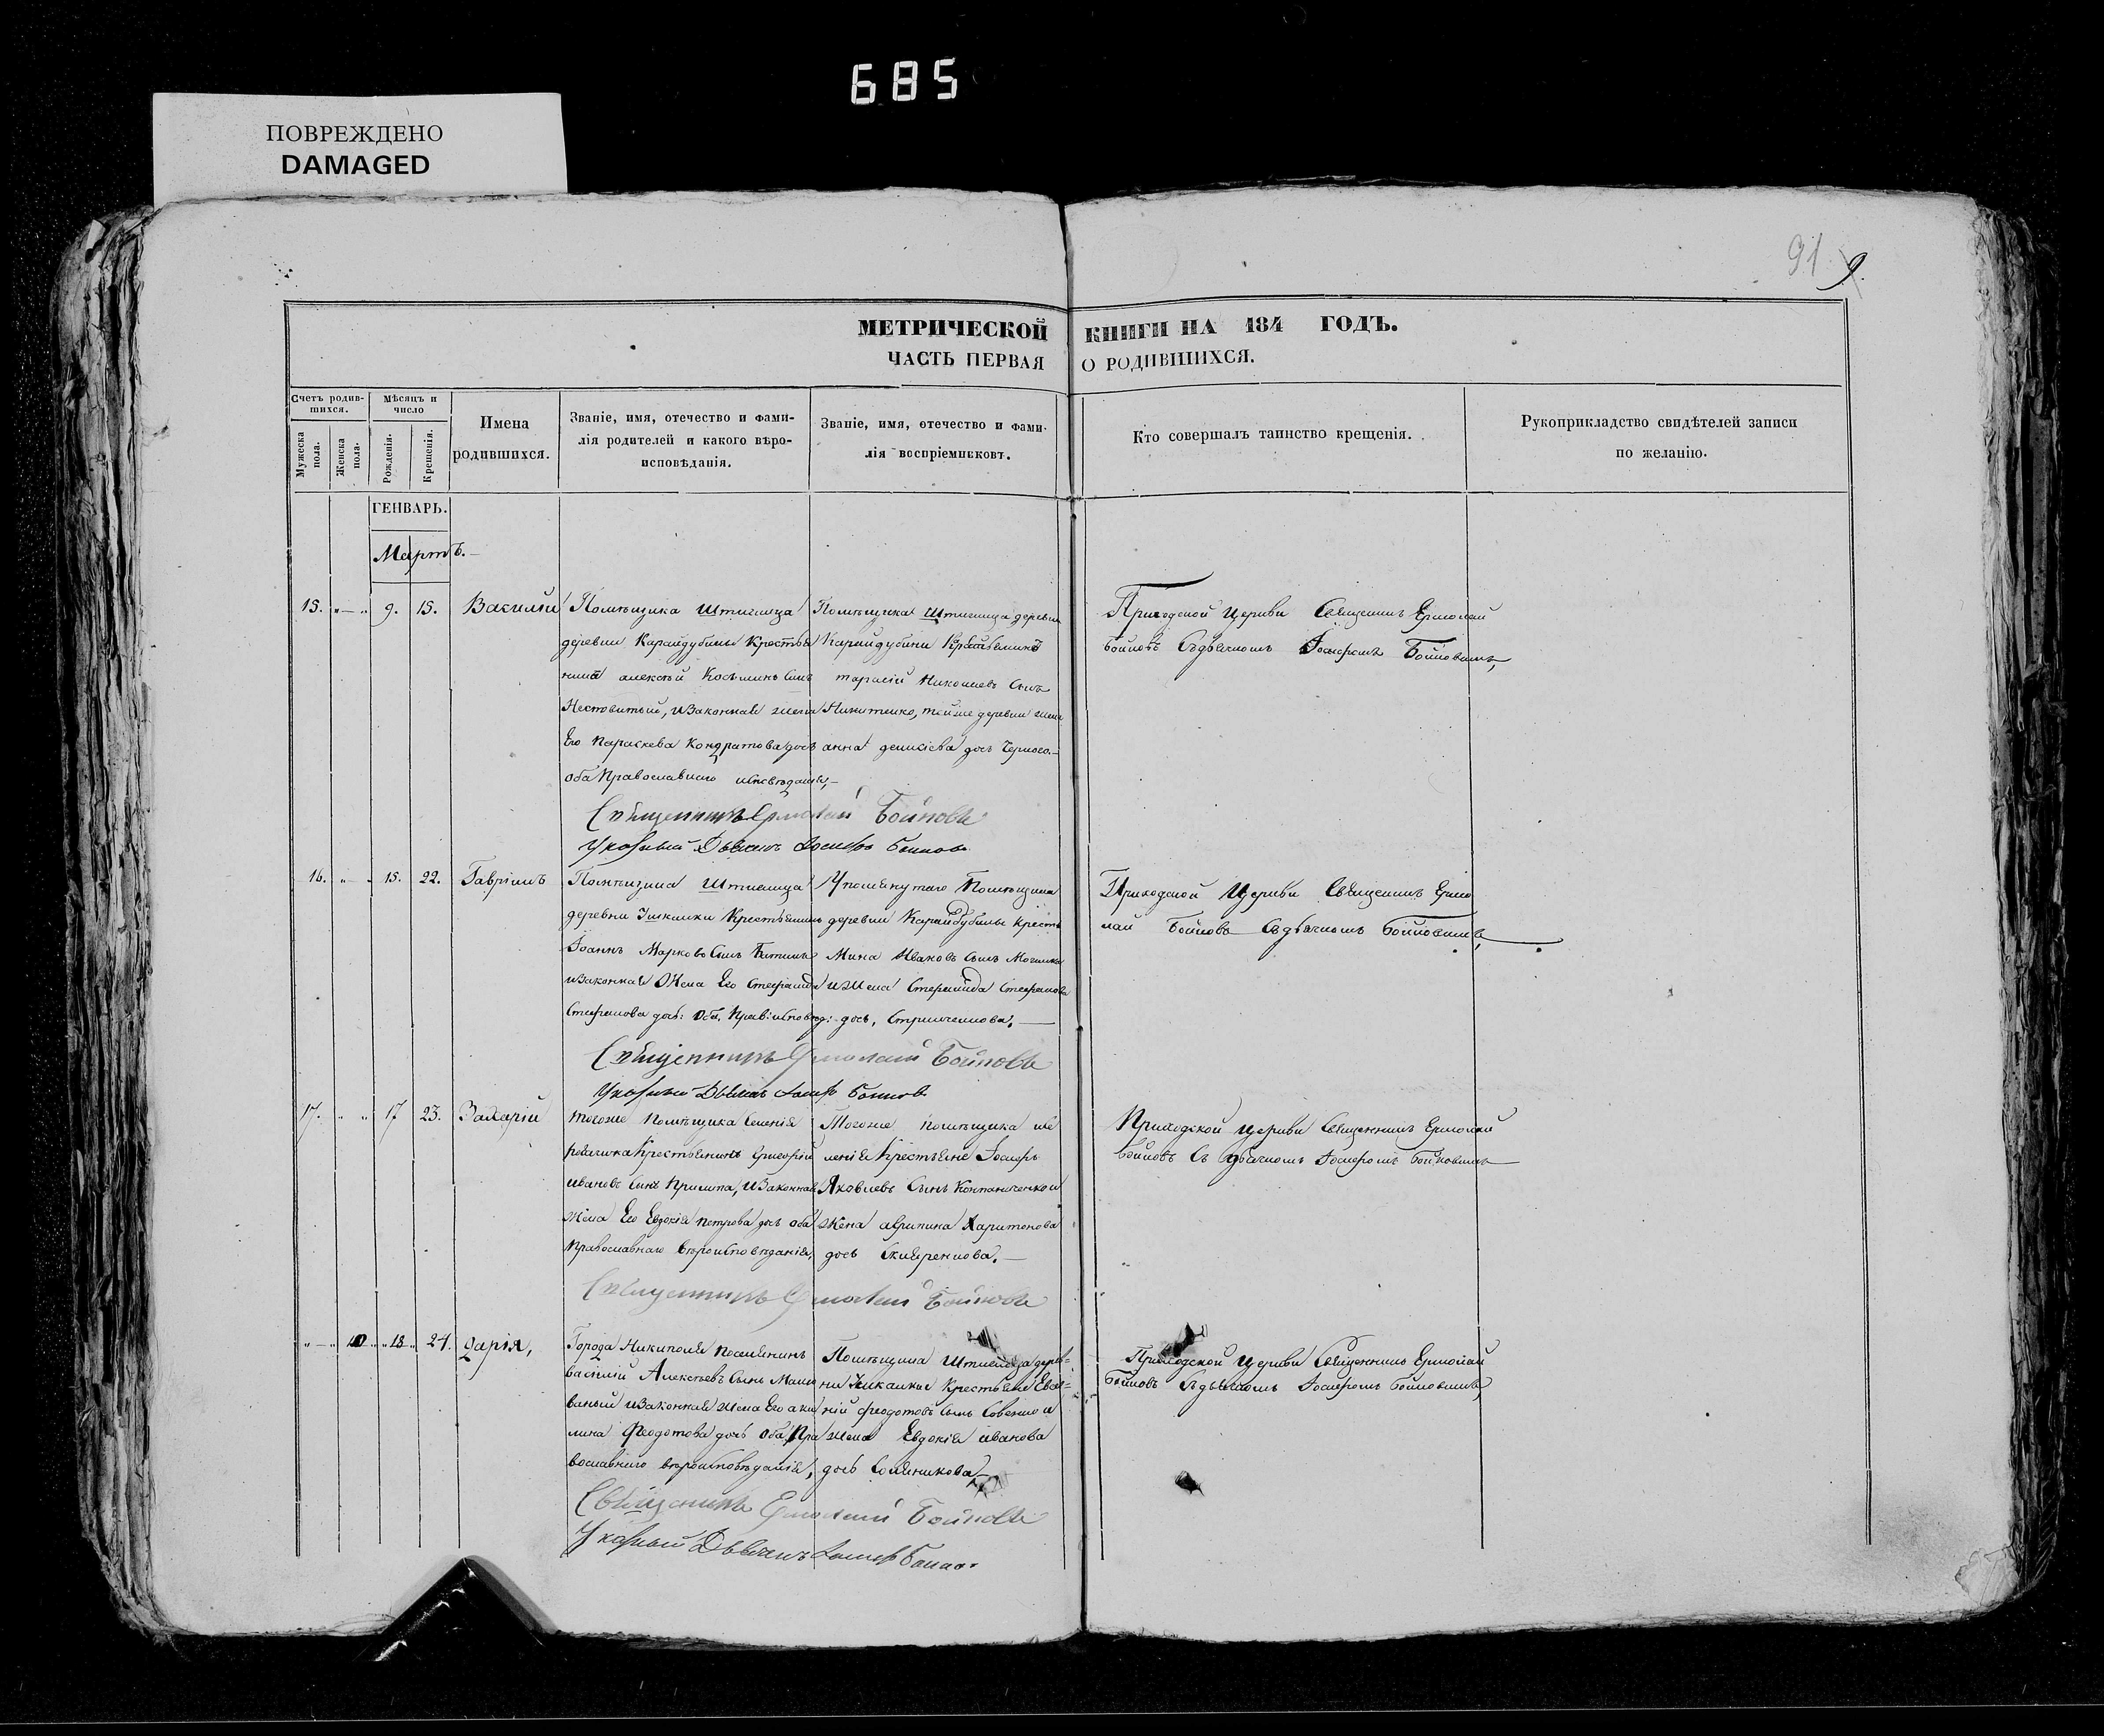 685
ПОВРЕЖДЕНО
DAMAGED
91
9.
МЕТРИЧЕСКОЙ КНИГИ НА 184 ГОДЪ.
ЧАСТЬ ПЕРВАЯ О РОДИВШИХСЯ.
Счетъ родив-
шихся.
Мужеска пола.
Женска пола.
Мѣсяцъ и
число
Рожденія.
Крещенія.
Имена
родившихся.
Званіе, имя, отечество и фами-
лія родителей и какого вѣро-
исповѣданія.
Званіе, имя, отечество и фами-
лія воспріемниковъ.
Кто совершалъ таинство крещенія.
Рукоприкладство свидѣтелей записи
по желанію.
ГЕНВАРЬ.
Мартъ.
15. 9. 15. Василій
Помѣщика Штиглица
деревни Карайдубины Крестья
нинъ алексѣй Косминъ сынъ
Нестовитый, изаконная жена
Его Параскева Кондратова дочь
оба Православнаго
Священникъ Ермолай Бойновъ
Указный Дьячекъ Іосифъ Бойновъ
Помѣщика Штиглица деревни
Карайдубины
тарасій сынъ
Никитенко, тойже деревни
анна дочь
Приходской Церкви Священникъ Ермолай
Бойновъ Съдьячкомъ Іосифомъ Бойновымъ,
16. 15. 22. Гавріилъ
Помѣщика Штиглица
деревни Крестьянинъ
Іоаннъ Марковъ сынъ
изаконная Жена Его Стефанида
Стефанова дочь: Оба. Прав: исповѣд:
Священникъ Ермолай Бойновъ
Указный Дьячекъ Іосифъ Бойновъ
Упомянутаго Помѣщика
деревни Карайдубины Крест:
Мина Ивановъ сынъ
и Жена Стефанида Стефанова
дочь,
Приходской Церкви Священникъ Ермо
лай Бойновъ Съдьячкомъ Бойновымъ,
17. 17 23. Захарій
тогоже Помѣщика селенія
Крестьянинъ Григорій
ивановъ сынъ Примпа, изаконная
жена Его Евдокія петрова дочь оба
Православнаго вѣроисповѣданія,
Священникъ Ермолай Бойновъ
Тогоже помѣщика
ленія Крестьяне Іосифъ
Яковлевъ сынъ и
жена Харитонова
дочь
Приходской Церкви Священникъ Ермолай
Бойновъ Съ дьячкомъ Іосифомъ Бойновымъ
10 18 24. дарія,
Города Никиполя поселянинъ
василій Алексѣевъ сынъ
ваный изаконная жена Его аки
лина Феодотова дочь оба Пра
вославнаго вѣроисповѣданія,
Священникъ Ермолай Бойновъ
Указный Дьячекъ Іосифъ Бойновъ
Помѣщика Штиглица дерев=
ни Крестьяне
ній феодотовъ сынъ и
жена Евдокія иванова
дочь
Приходской Церкви Священникъ Ермолай
Бойновъ Съдьячкомъ Іосифомъ Бойновымъ,